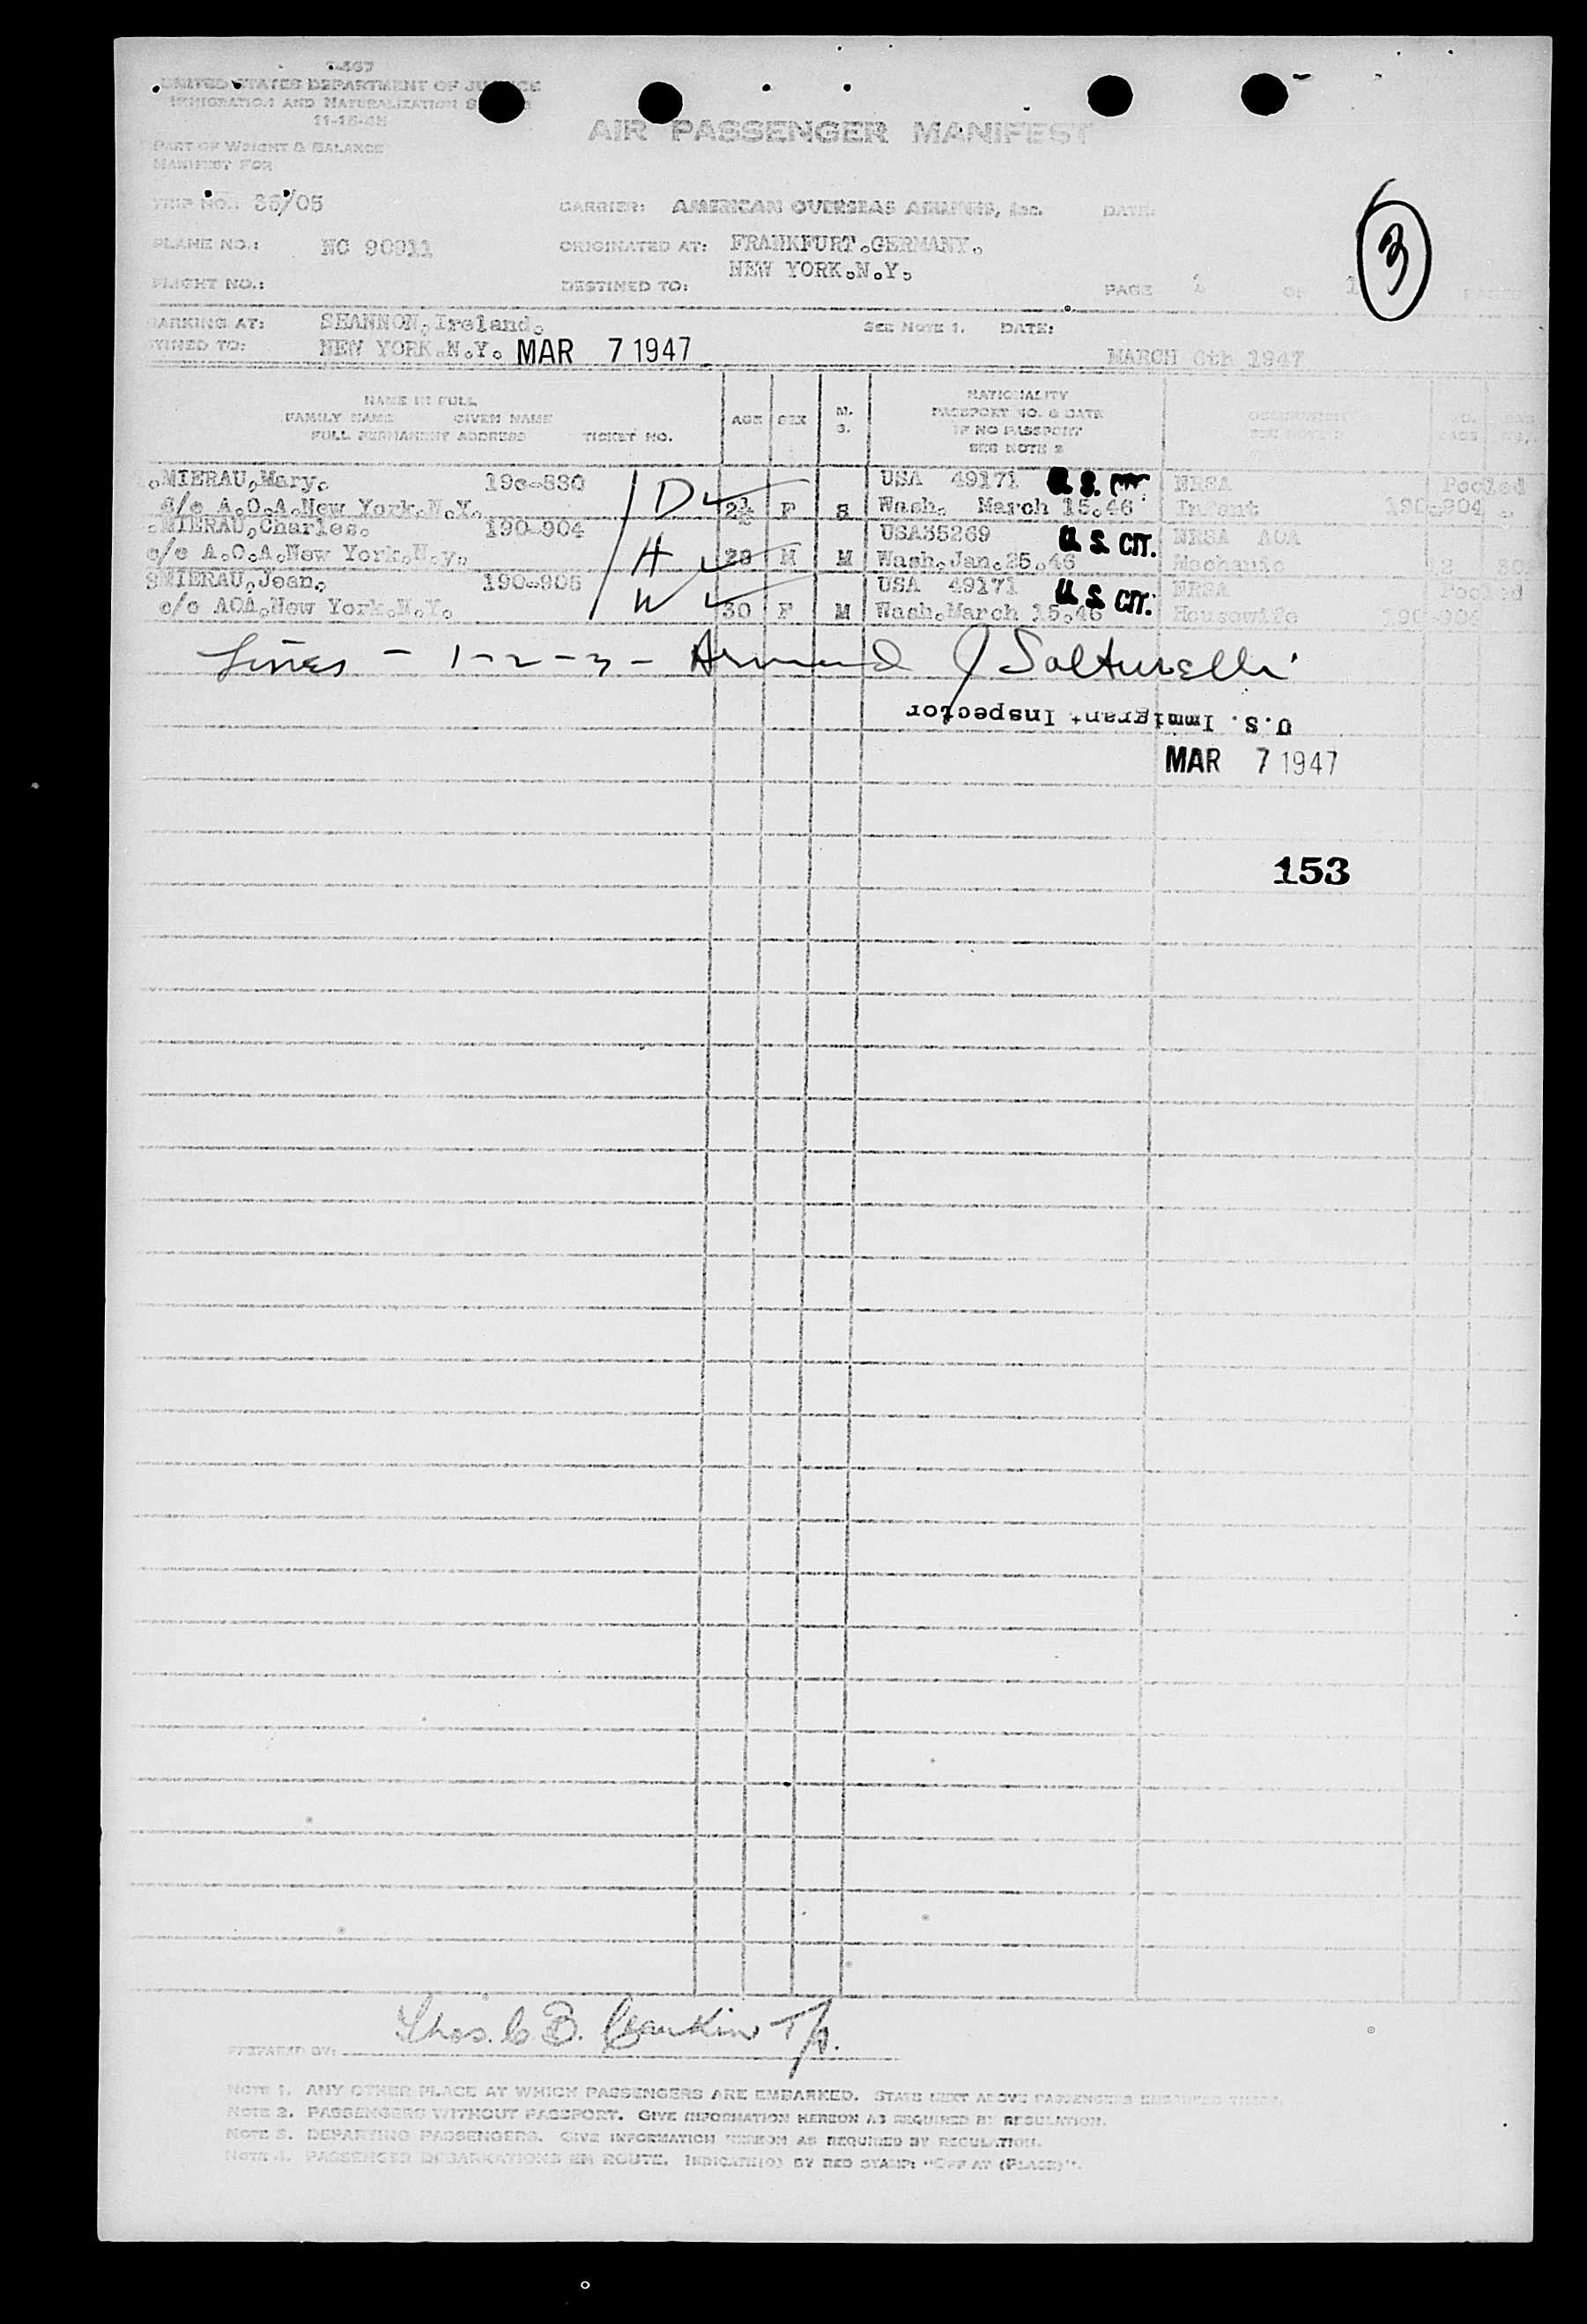 I-467
UNITED STATES DEPARTMENT OF JUSTICE
IMMIGRATION AND NATURALIZATION
11-15-45
AIR PASSENGER MANIFEST
PART OF WEIGHT & BALANCE
MANIFEST FOR
TRIP NO.: 35/05 CARRIER: AMERICAN OVERSEAS AIRLINES, Inc. DATE:
3
PLANE NO.: NC 90911 ORIGINATED AT: FRANKFURT.GERMANY.
NEW YORK.N.Y.
FLIGHT NO.: DESTINED TO: PAGE OF 1
BARKING AT: SHANNON,Ireland. SEE NOTE 1. DATE:
TINED TO: NEW YORK.N.Y. MAR 7 1947 MARCH 6th 1947
NAME IN FULL
FAMILY NAME GIVEN NAME
FULL PERMANENT ADDRESS TICKET NO.
AGE SEX M. S.
NATIONALITY
PASSPORT NO. & DATE
IF NO PASSPORT
SEE NOTE 2
MIERAU,Mary. 190-830 USA 49171 U.S. NRSA Pooled
c/o A.O.A.New York.N.Y. D 2½ F S Wash. March 15.46 Infant 190-904
MIERAU,Charles. 190-904 USA35269 U.S. CIT. NRSA AOA
c/o A.O.A,New York,N.y. H 28 M M Wash.Jan.25.46 Mechanic
3MIERAU,Jean. 190-905 USA 49171 U.S. CIT. NRSA Pooled
c/o AOA.New York.N.Y. W 30 F M Wash.March 15.46 Housewife 190-904
Lines - 1-2-3- Armand J Salturelli
U.S. Immigrant Inspector
MAR 7 1947
153
Thos. C. B.
PREPARED BY:
NOTE 1. ANY OTHER PLACE AT WHICH PASSENGERS ARE EMBARKED. STATE NEXT ABOVE PASSENGERS EMBARKED THERE.
NOTE 2. PASSENGERS WITHOUT PASSPORT. GIVE INFORMATION HEREON AS REQUIRED BY REGULATION.
NOTE 3. DEPARTING PASSENGERS. GIVE INFORMATION HEREON AS REQUIRED BY REGULATION.
NOTE 4. PASSENGER DEBARKATIONS EN ROUTE. INDICATE(D) BY RED STAMP: "OFF AT (PLACE)".